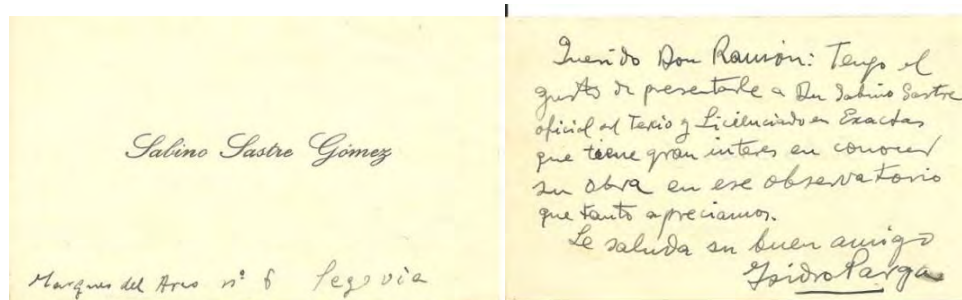 Sabino Sastre Gómez
Marques del Arco nº 6 Segovia
Querido Don Ramón: Tengo el
gusto de presentarle a Don Sabino Sastre
oficial del Tercio y Licenciado en Exactas
que tiene gran interes en conocer
su obra en ese observatorio
que tanto apreciamos.
Le saluda su buen amigo
Isidro Parga